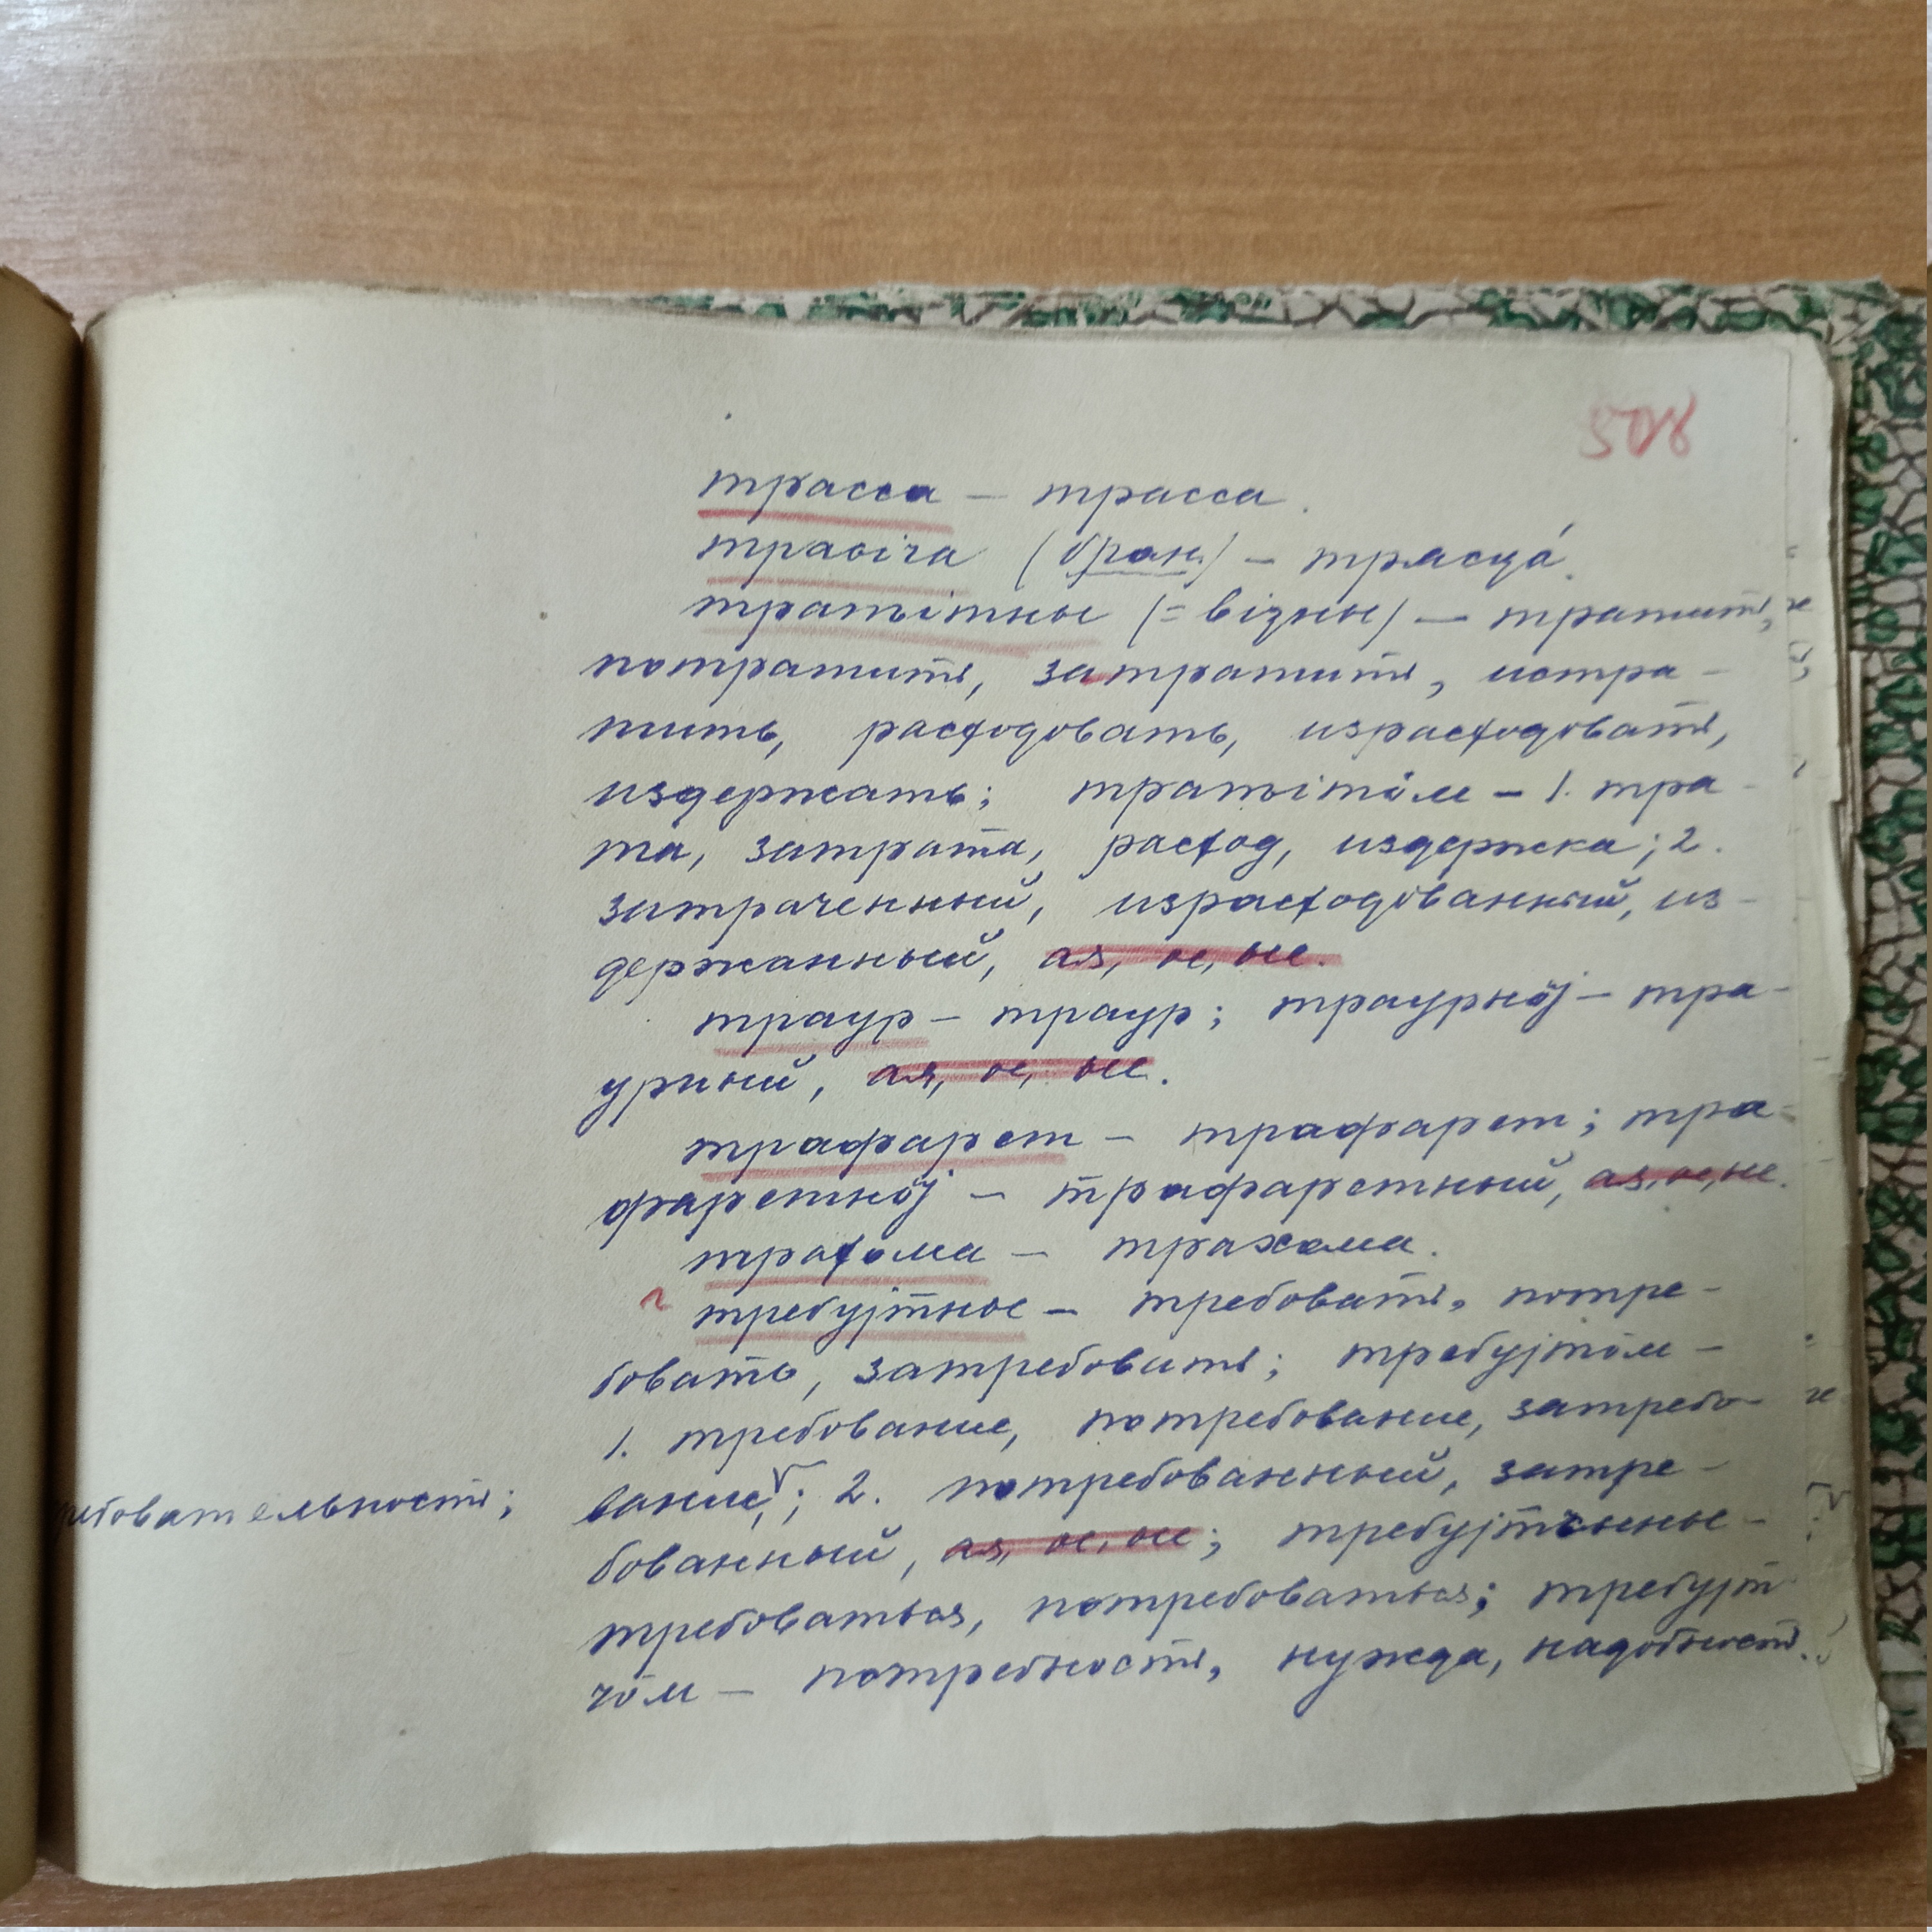 508
трасса – трасса.
трасіча (бран.) – трясца́.
тратітны (= візны) – тратить,
потратить, затратить, истра-
тить, расходовать, израсходовать,
издержать; тратітӧм – 1. тра-
та, затрата, расход, издержка; 2.
затраченный, израсходованный, из-
держанный, ая, ое, ые.
траур – траур; траурнӧј – тра-
урный, ая, ое, ые.
трафарет – трафарет; тра-
фаретнӧј – трафаретный, ая, ое, ые.
трахома – трахома.
требујтны – требовать, потре-
бовать, затребовать; требујтӧм –
1. требование, потребование, затребо-
вание,; 2. потребованный, затре-
ребовательность;
бованный, ая, ое, ые; требујтчыны –
требоваться, потребоваться; требујт
чӧм – потребность, нужда, надобность.